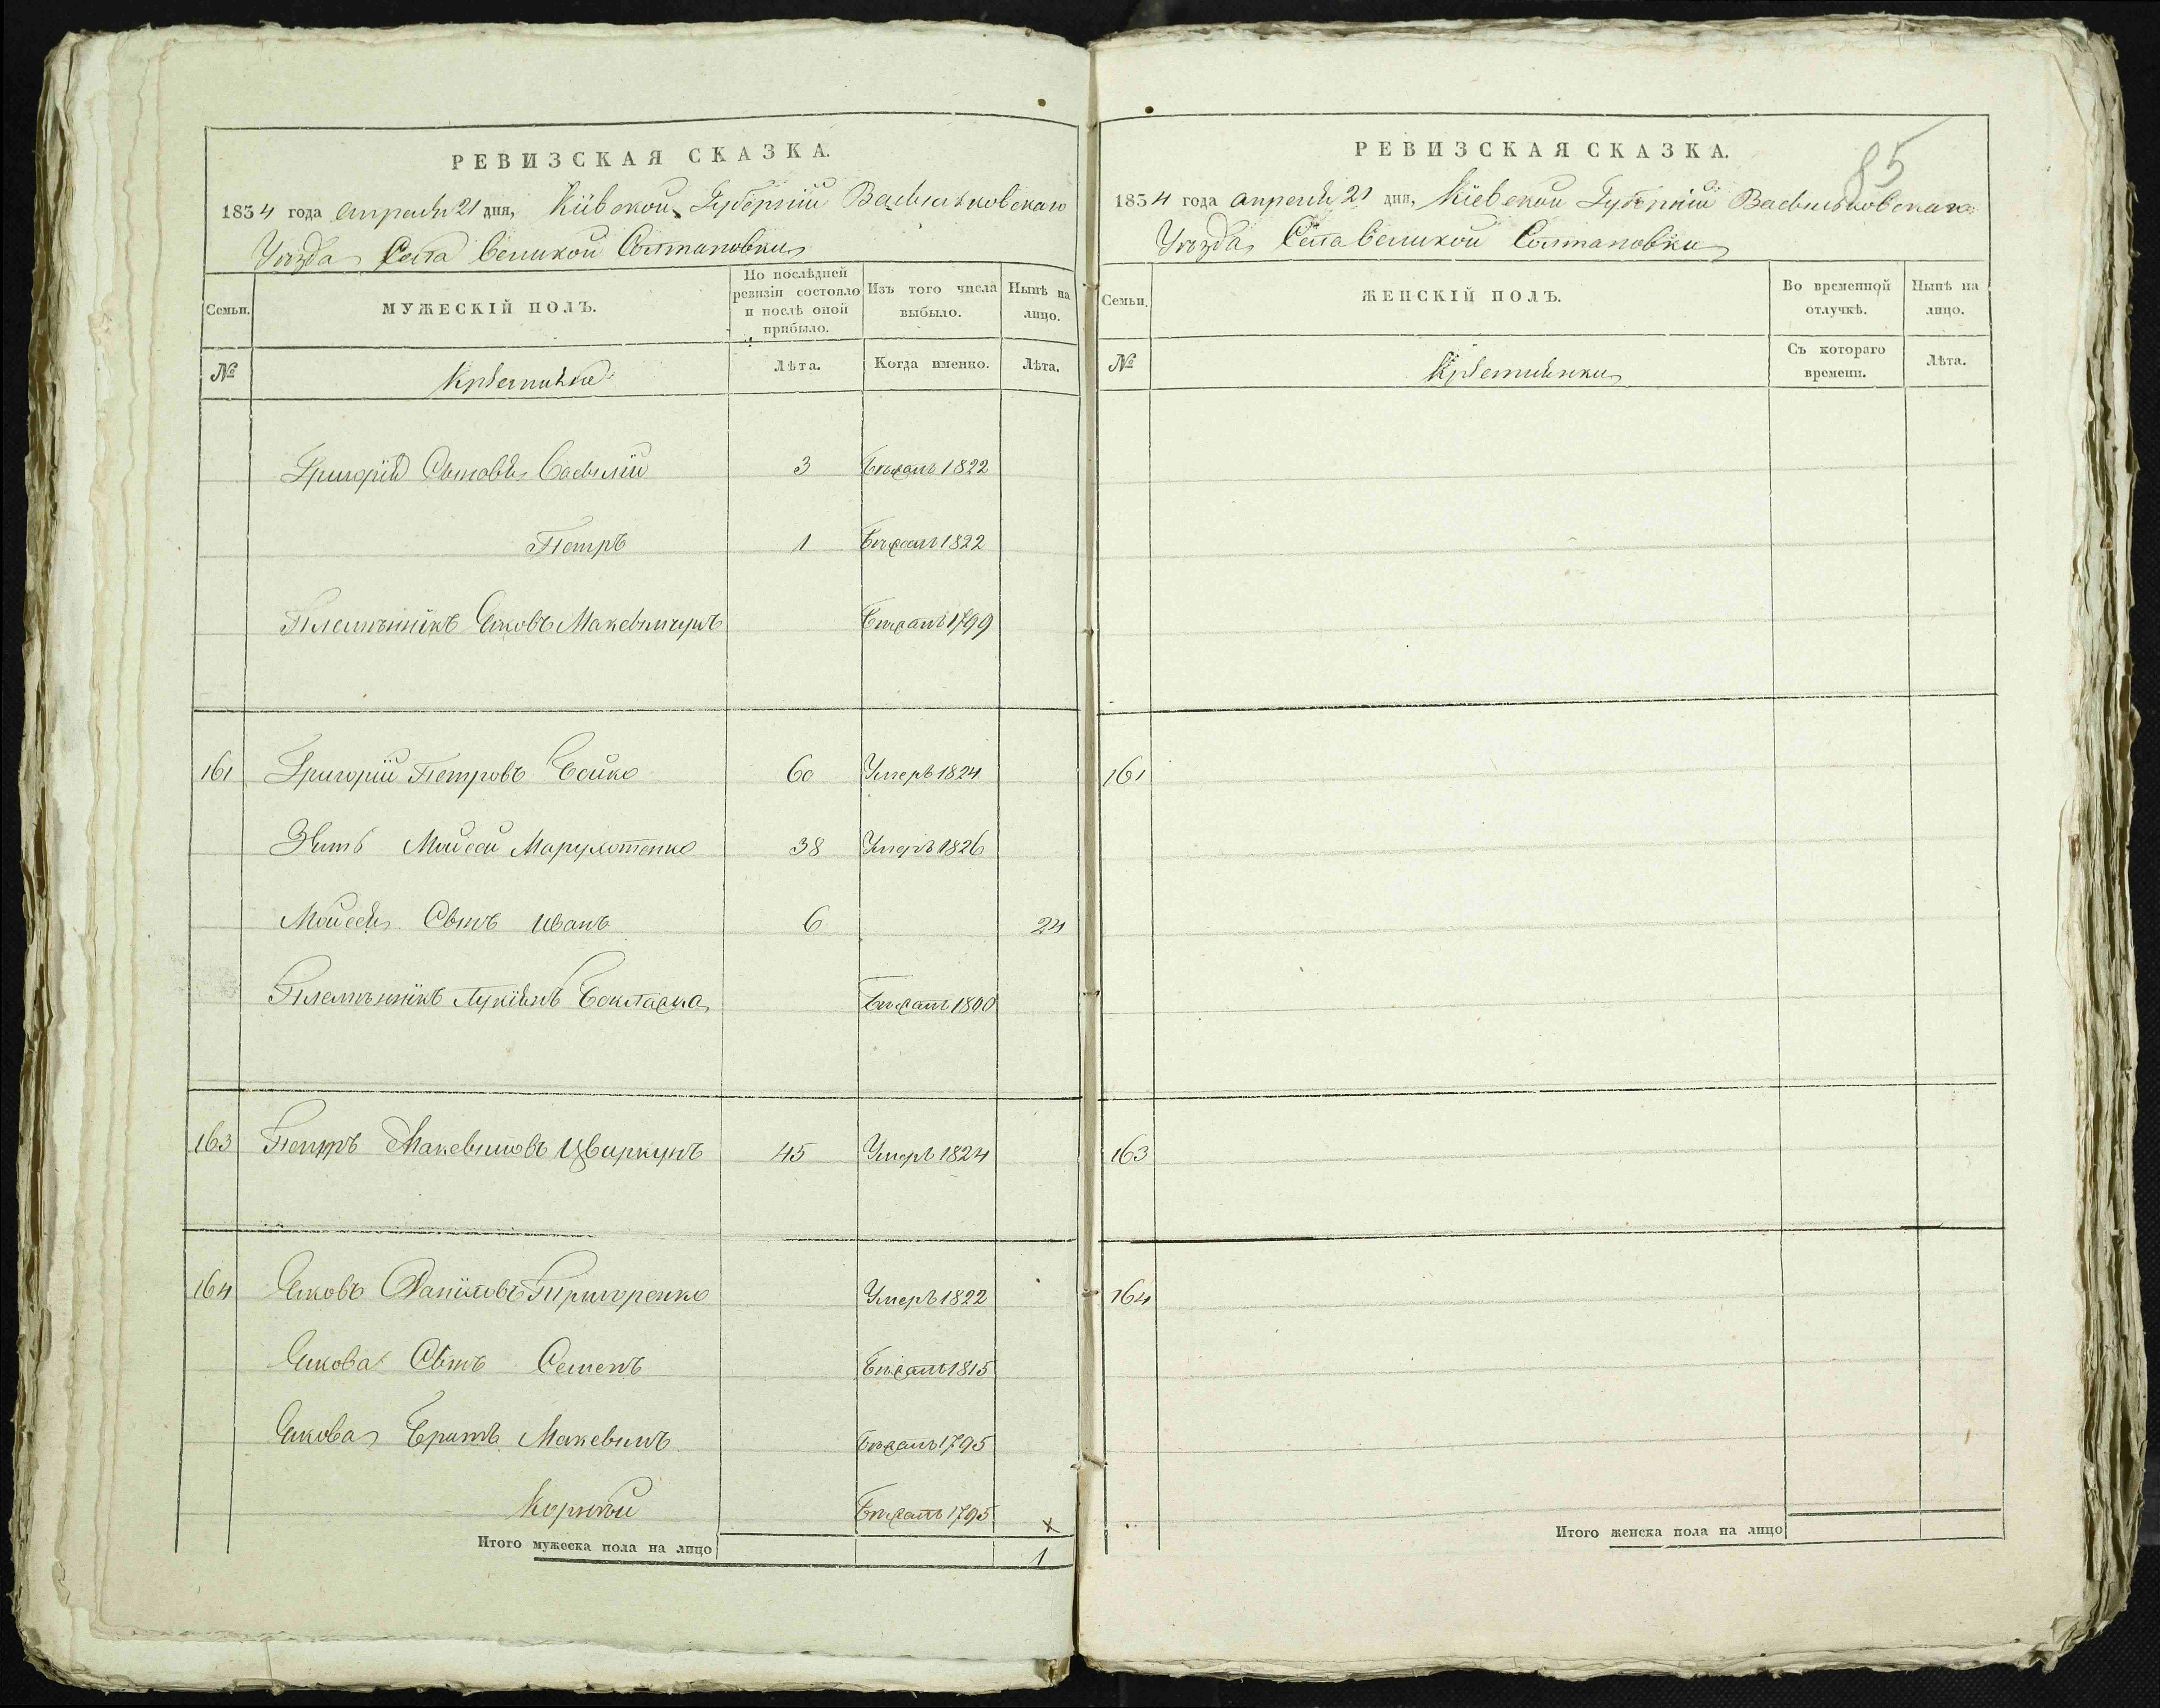 РЕВИЗСКАЯ СКАЗКА.
1834 года Апреля 21 дня, Кіевской Губерніи Васильковскаго
Уѣзда Села Великой Солтановки
Семьи.
МУЖЕСКІЙ ПОЛЪ.
По послѣдней ревизіи состояло и послѣ оной прибыло.
Изъ того числа выбыло.
Нынѣ на лицо.
№
Крестьяне
Лѣта.
Когда именно.
Лѣта.
Григорія Сыновья Василій 3 Бѣжалъ 1822
Петръ 1 Бѣжалъ 1822
Племѣнникъ Яковъ Бѣжалъ 1799
161 Григорій Петровъ Бойко 60 Умеръ 1824
Зять Мойсей 38 Умеръ 1826
Мойсея Сынъ Иванъ 6 24
Племѣнникъ Лукіянъ Баклажка Бѣжалъ 1800
163 Петръ Максимовъ Цвиркунъ 45 Умеръ 1824
164 Яковъ Даниловъ Григоренко Умеръ 1822
Якова Сынъ Семенъ Бѣжалъ 1815
Якова Братъ Максимъ Бѣжалъ 1795
Корнѣй Бѣжалъ 1795
х
Итого мужеска пола на лицо 1
85
РЕВИЗСКАЯ СКАЗКА.
1834 года Апреля 21 дня, Кіевской Губерніи Васильковскаго
Уѣзда Села Великой Солтановки
Семьи.
ЖЕНСКІЙ ПОЛЪ.
Во временной отлучкѣ.
Нынѣ на лицо.
№
Крестьянки
Съ котораго времени.
Лѣта.
161
163
164
Итого женска пола на лицо